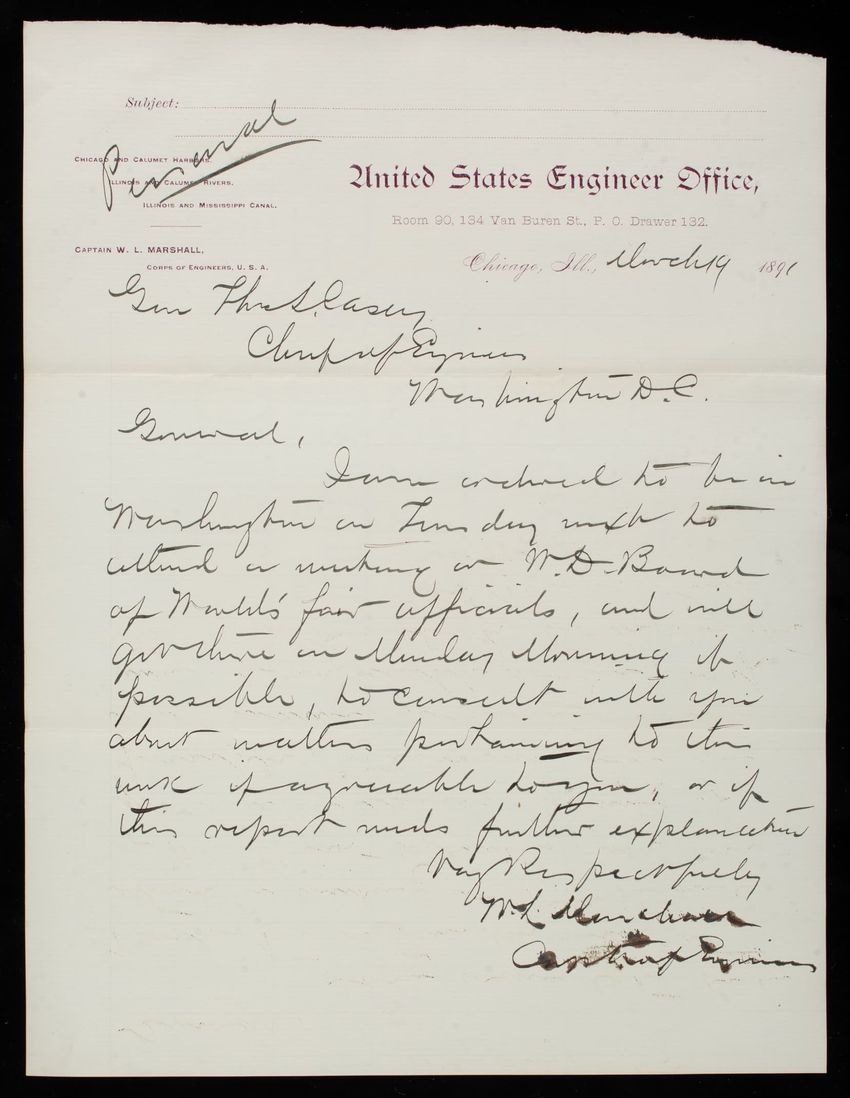 Subject:
Personal
CHICAGO AND CALUMET HARBORS.
ILLINOIS AND CALUMET RIVERS.
ILLINOIS AND MISSISSIPPI CANAL.
CAPTAIN W. L. MARSHALL,
CORPS OF ENGINEERS, U. S. A.
United States Engineer Office,
Room 90, 134 Van Buren St., P. O. Drawer 132.
Chicago, Ill., March 19 1891
Gen Thos L. Casey
Chief of Engineers
Washington D.C.
General,
I am ordered to be in
Washington on Tuesday next to
attend a meeting or W.D. Board
of World's fair officials, and will
go there on Monday Morning if
possible, to consult with you
about matters pertaining to this
work if agreeable to you, or if
this report needs further explanation
Very Respectfully
W. L. Marshall
Capt of Engineers